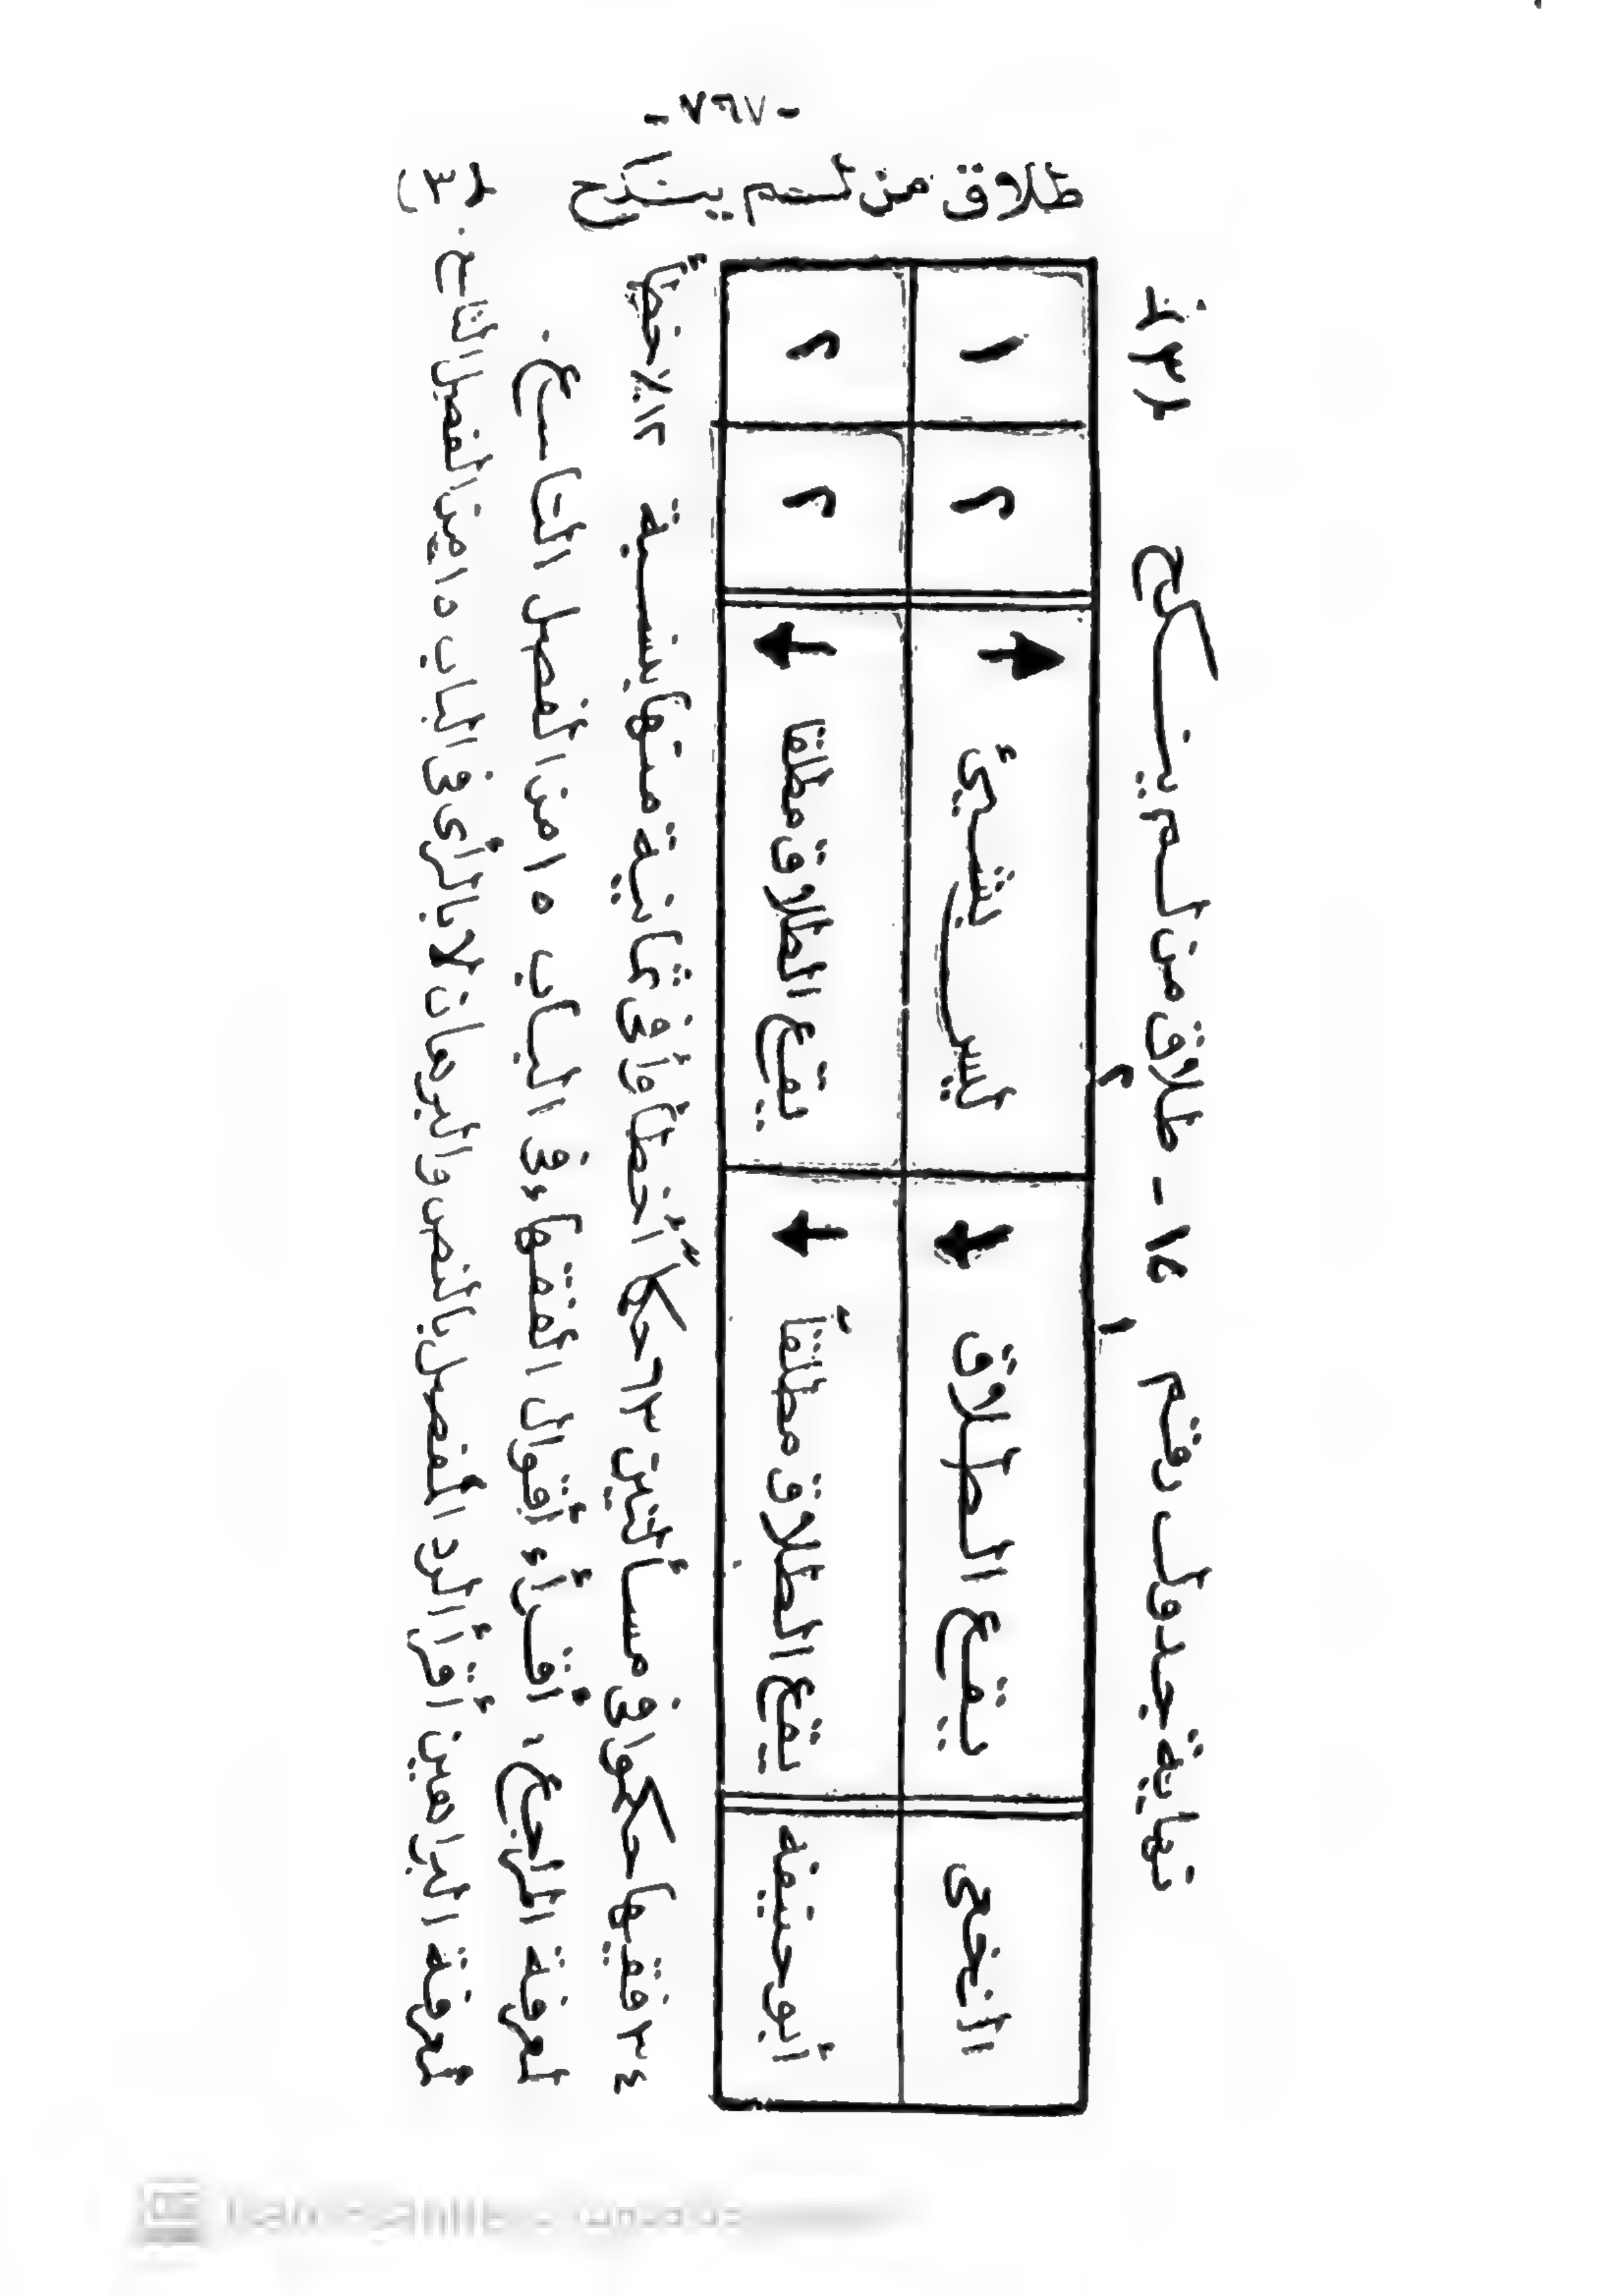 - ٧٦٧ -
طلاق من لم ينكح (٣)
نهاية جدول رقم ١٤ - طلاق من لم ينكح
١ ٢
النخعى يقع الطلاق ليس بشيئ ٢ ١
أبو حنيفه يقع الطلاق مطلقاً يقع الطلاق مطلقا ٢ ٢
٣٤ فقيها حكموا فى مسألتين ٦٣ حكماً أخطأوا فى ثمانية منها بنسبة ١٢٪ خطأ
لمعرفة المراجع، اقرأ، أقوال الفقهاء فى الباب ١٥ من الفصل التاسع.
لمعرفة البراهين أقرأ الرد المفصل بالنص والبرهان لا بالرأى فى الباب ١٥ من الفصل التاسع.